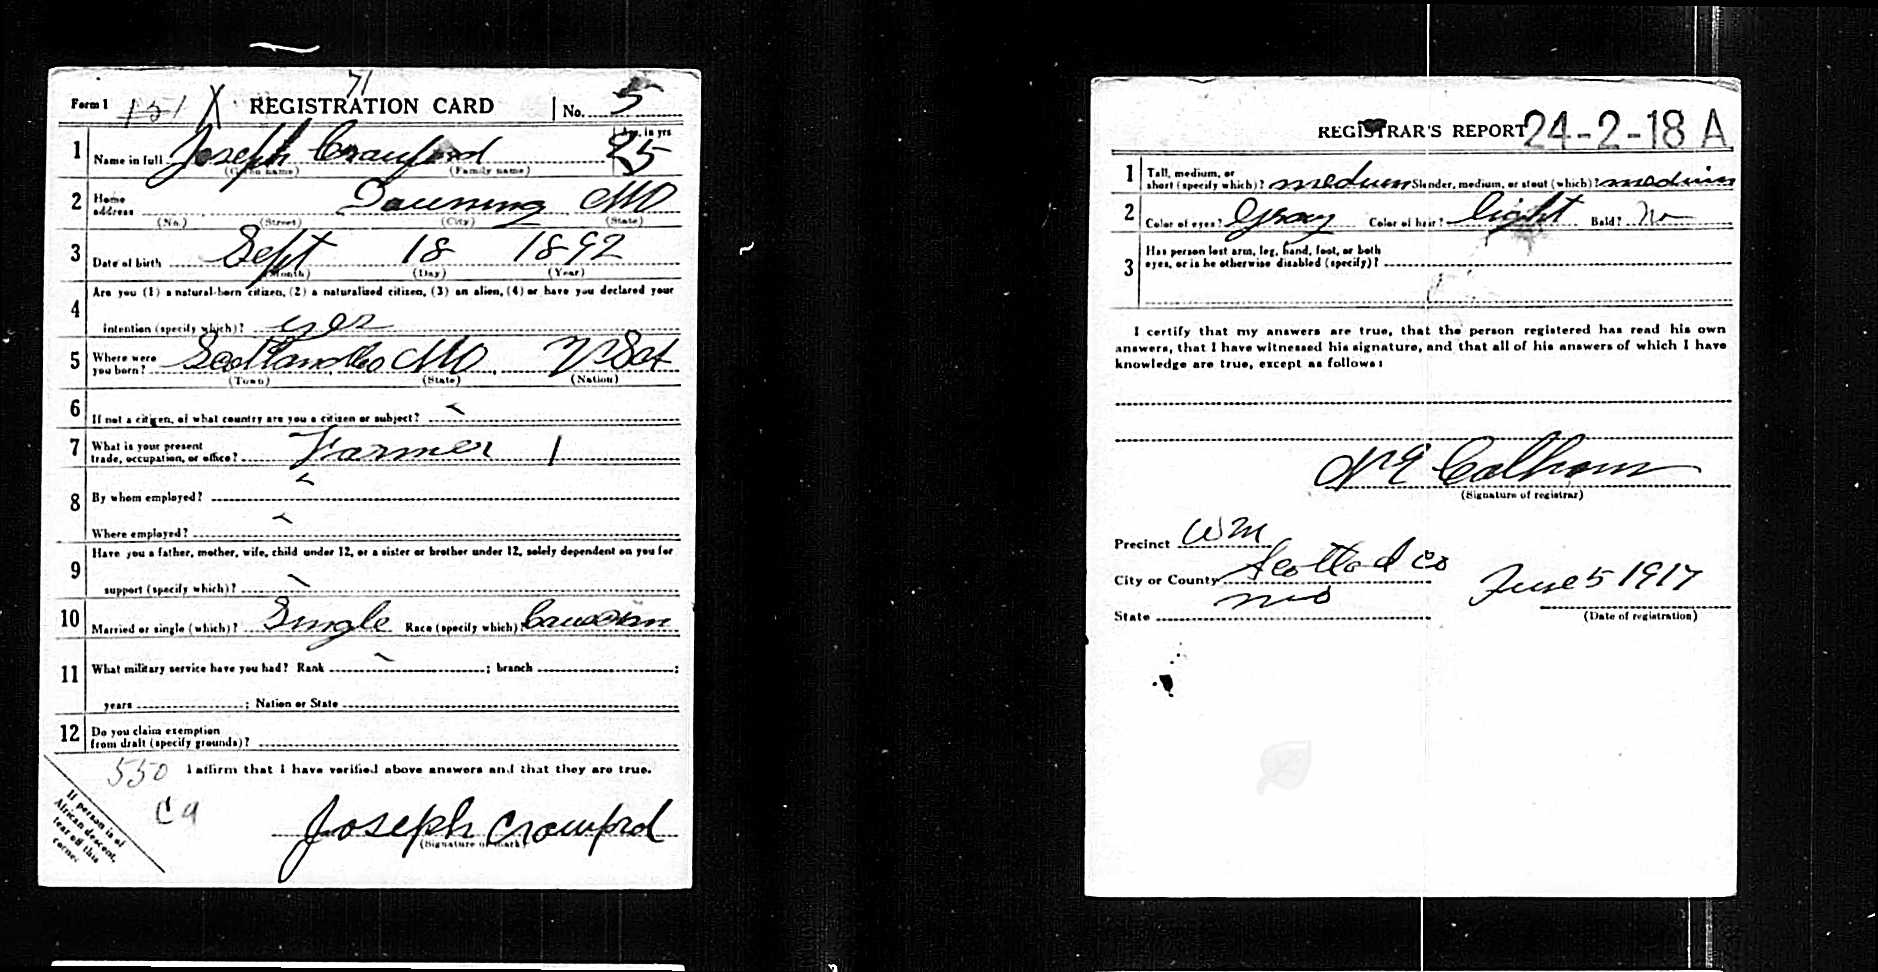 71
Form 1 151 X REGISTRATION CARD No. 5
1 Name in full Joseph Crawford Age, in yrs 25
(Given name) (Family name)
2 Home address Downing MO
(No.) (Street) (City) (State)
3 Date of birth Sept 18 1892
(Month) (Day) (Year)
4 Are you (1) a natural-born citizen, (2) a naturalized citizen, (3) an alien, (4) or have you declared your
intention (specify which)? yes
5 Where were you born? Scotland Co MO
(Town) (State) (Nation)
6 If not a citizen, of what country are you a citizen or subject?
7 What is your present
trade, occupation, or office? Farmer 1
8 By whom employed?
Where employed?
9 Have you a father, mother, wife, child under 12, or a sister or brother under 12, solely dependent on you for
support (specify which)?
10 Married or single (which)? Single Race (specify which)? Caucasian
11 What military service have you had? Rank ; branch ;
years ; Nation or State
12 Do you claim exemption
from draft (specify grounds)?
550 I affirm that I have verified above answers and that they are true.
If person is of
African descent,
tear off this
corner.
Joseph Crowford
(Signature or mark)
REGISTRAR'S REPORT 24-2-18 A
1 Tall, medium, or
short (specify which)? medium Slender, medium, or stout (which)? medium
2 Color of eyes? Gray Color of hair? light Bald? No
3 Has person lost arm, leg, hand, foot, or both
eyes, or is he otherwise disabled (specify)?
I certify that my answers are true, that the person registered has read his own
answers, that I have witnessed his signature, and that all of his answers of which I have
knowledge are true, except as follows:
Calhoun
(Signature of registrar)
Precinct WM
City or County Scotland Co
State Mo June 5 1917
(Date of registration)